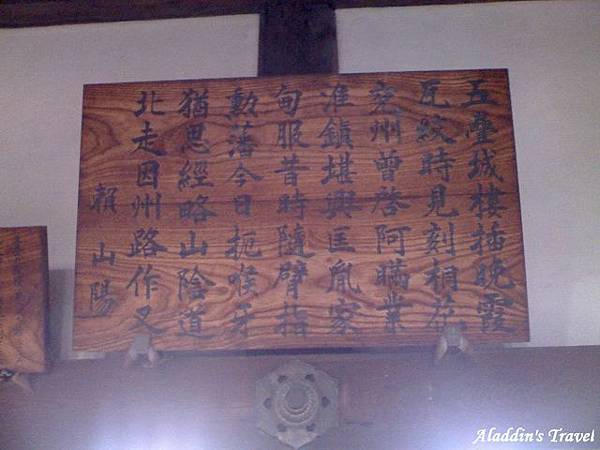 五疊城樓插晩霞
瓦紋時見刻桐花
兗州曾啓阿瞞業
淮鎮堪興匡胤家
甸服昔時隨臂指
勳藩今日扼喉牙
猶思經略山陰道
北走因州路作叉
賴山陽
Aladdin's Travel